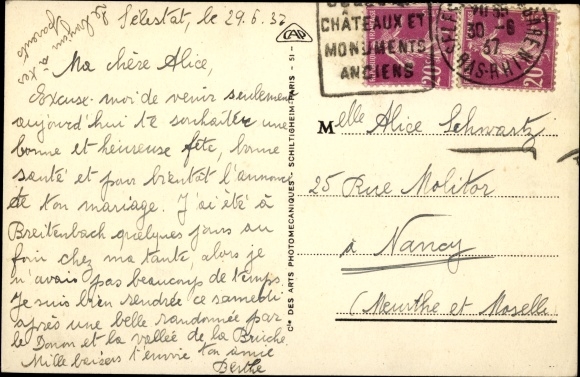 Sélestat, le 29.6.37
Ma chère Alice,
Excuse-moi de venir seulement
aujourd'hui te souhaiter une
bonne et heureuse fête, bonne
santé et pour bientôt l'annonce
de ton mariage. J'ai été à
Breitenbach quelques jours au
foin chez ma tante, alors je
n'avais pas beaucoup de temps.
Je suis bien rendrée ce samedi
après une belle randonnée par
le Donon et la vallée de la Bruche.
Mille baisers t'envoie ton amie
Berthe
à tes
parents
CAP
Cie DES ARTS PHOTOMECANIQUES - SCHILTIGHEIM-PARIS - 51 -
CHÂTEAUX ET
MONUMENTS
ANCIENS
30 - 6
37
BAS-RHIN
20c
20c
Melle Alice Schwartz
25 Rue Molitor
à Nancy
(Meurthe et Moselle